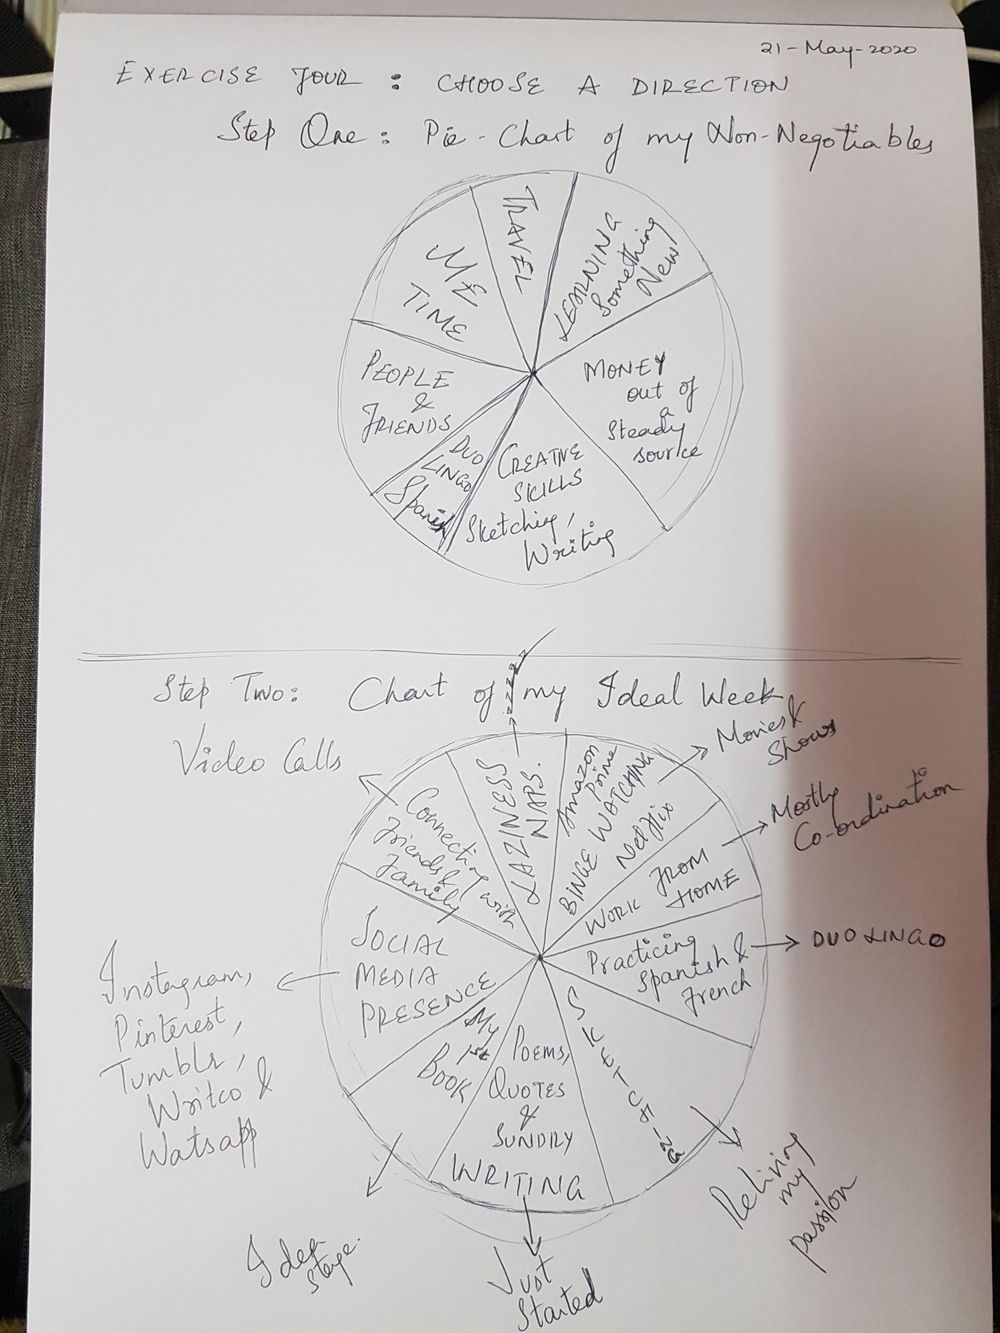 21-May-2020
EXERCISE FOUR : CHOOSE A DIRECTION
Step One : Pie-Chart of my Non-Negotiables
TRAVEL
LEARNING
Something
New
MONEY
out of
a
Steady
source
CREATIVE
SKILLS
Sketching,
Writing
DUO
LINGO
Spanish
PEOPLE
&
FRIENDS
ME
TIME
Step Two: Chart of my Ideal Week
LAZINESS
NAPS.
zzzzz
Amazon
Prime
BINGE WATCHING
Netflix
Movies &
Shows
WORK FROM
HOME
Mostly
Co-ordination
Practicing
Spanish &
French
DUO LINGO
SKETCHING
Reliving
my
passion
Poems,
QUOTES
&
SUNDRY
WRITING
Just
Started
My
1st
BOOK
Idea
stage.
SOCIAL
MEDIA
PRESENCE
Instagram,
Pinterest,
Tumblr,
Writco &
Watsapp
Connecting with
Friends &
Family
Video Calls